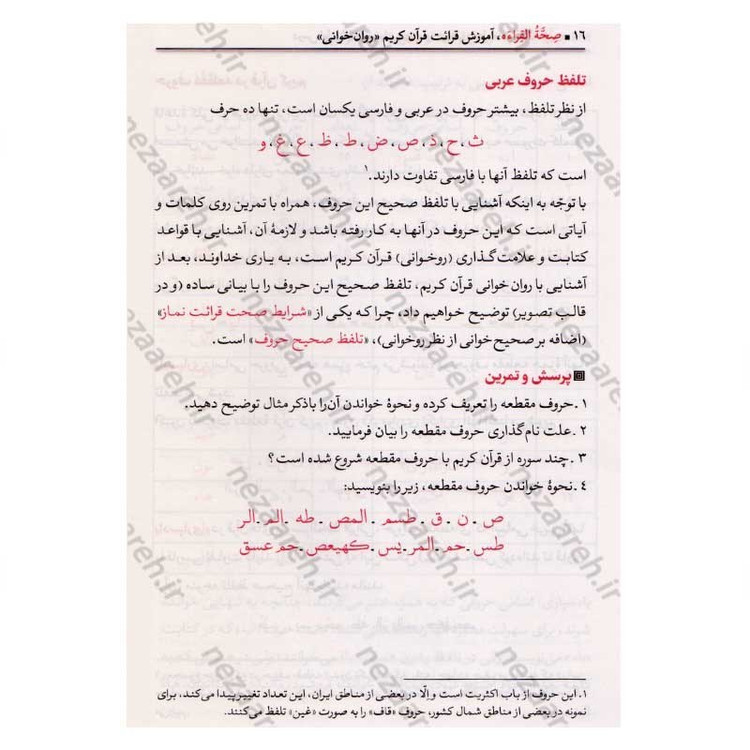 ۱۶ ■ صِحَّةُ القِراءَة، آموزش قرائت قرآن کریم «روان‌خوانی»
تلفظ حروف عربی
از نظر تلفظ، بیشتر حروف در عربی و فارسی یکسان است، تنها ده حرف
ث، ح، ذ، ص، ض، ط، ظ، ع، غ، و
است که تلفظ آنها با فارسی تفاوت دارند.۱
با توجّه به اینکه آشنایی با تلفظ صحیح این حروف، همراه با تمرین روی کلمات و
آیاتی است که این حروف در آنها به کار رفته باشد و لازمهٔ آن، آشنایی با قواعد
کتابت و علامت‌گذاری (روخوانی) قرآن کریم است، به یاری خداوند، بعد از
آشنایی با روان خوانی قرآن کریم، تلفظ صحیح این حروف را با بیانی ساده (و در
قالب تصویر) توضیح خواهیم داد، چرا که یکی از «شرایط صحت قرائت نماز»
(اضافه بر صحیح‌خوانی از نظر روخوانی)، «تلفظ صحیح حروف» است.
▣ پرسش و تمرین
۱ . حروف مقطعه را تعریف کرده و نحوهٔ خواندن آن را با ذکر مثال توضیح دهید.
۲ . علت نام‌گذاری حروف مقطعه را بیان فرمایید.
۳ . چند سوره از قرآن کریم با حروف مقطعه شروع شده است؟
٤ . نحوهٔ خواندن حروف مقطعه، زیر را بنویسید:
ص . ن . ق . طسم . المص . طه . الم . الر
طس . حم . المر . یس . کهیعص . حم عسق
۱ . این حروف از باب اکثریت است و إلّا در بعضی از مناطق ایران، این تعداد تغییر پیدا می‌کند، برای
نمونه در بعضی از مناطق شمال کشور، حروف «قاف» را به صورت «غین» تلفظ می‌کنند.
nezaareh.ir
nezaareh.ir
nezaareh.ir
nezaareh.ir
nezaareh.ir
nezaareh.ir
nezaareh.ir
nezaareh.ir
nezaareh.ir